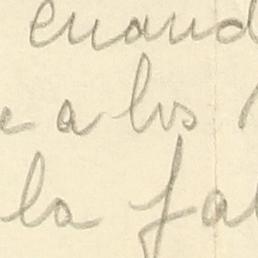 cuand
a los
la fal